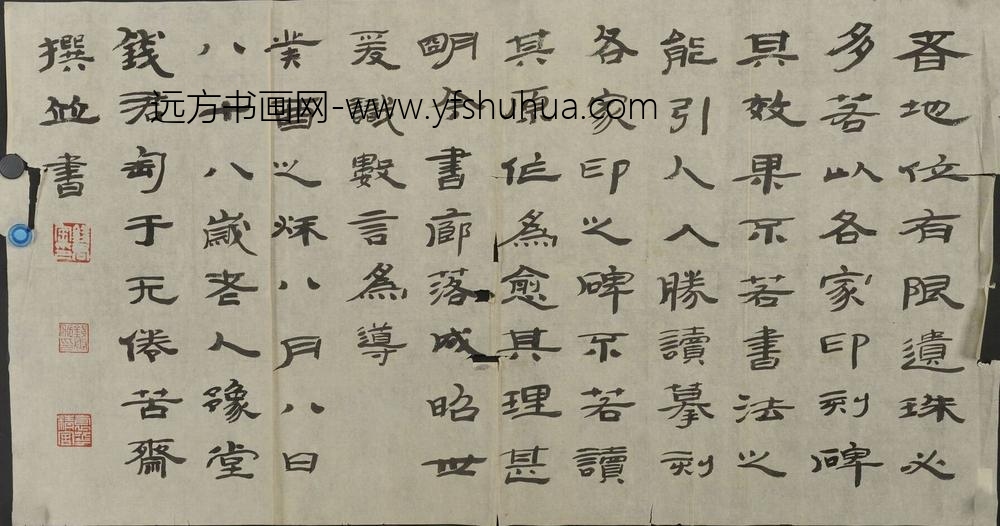 者地位有限遺珠必
多若以各家印刻碑
其效果不若書法之
能引人入勝讀摹刻
各家印之碑不若讀
其原作為愈其理甚
明今書廊落成昭世
爰數言為導
癸酉之秋八月八日
八十八歲老人豫堂
錢君匋于无倦苦齋
撰並書
远方书画网-www.yfshuhua.com